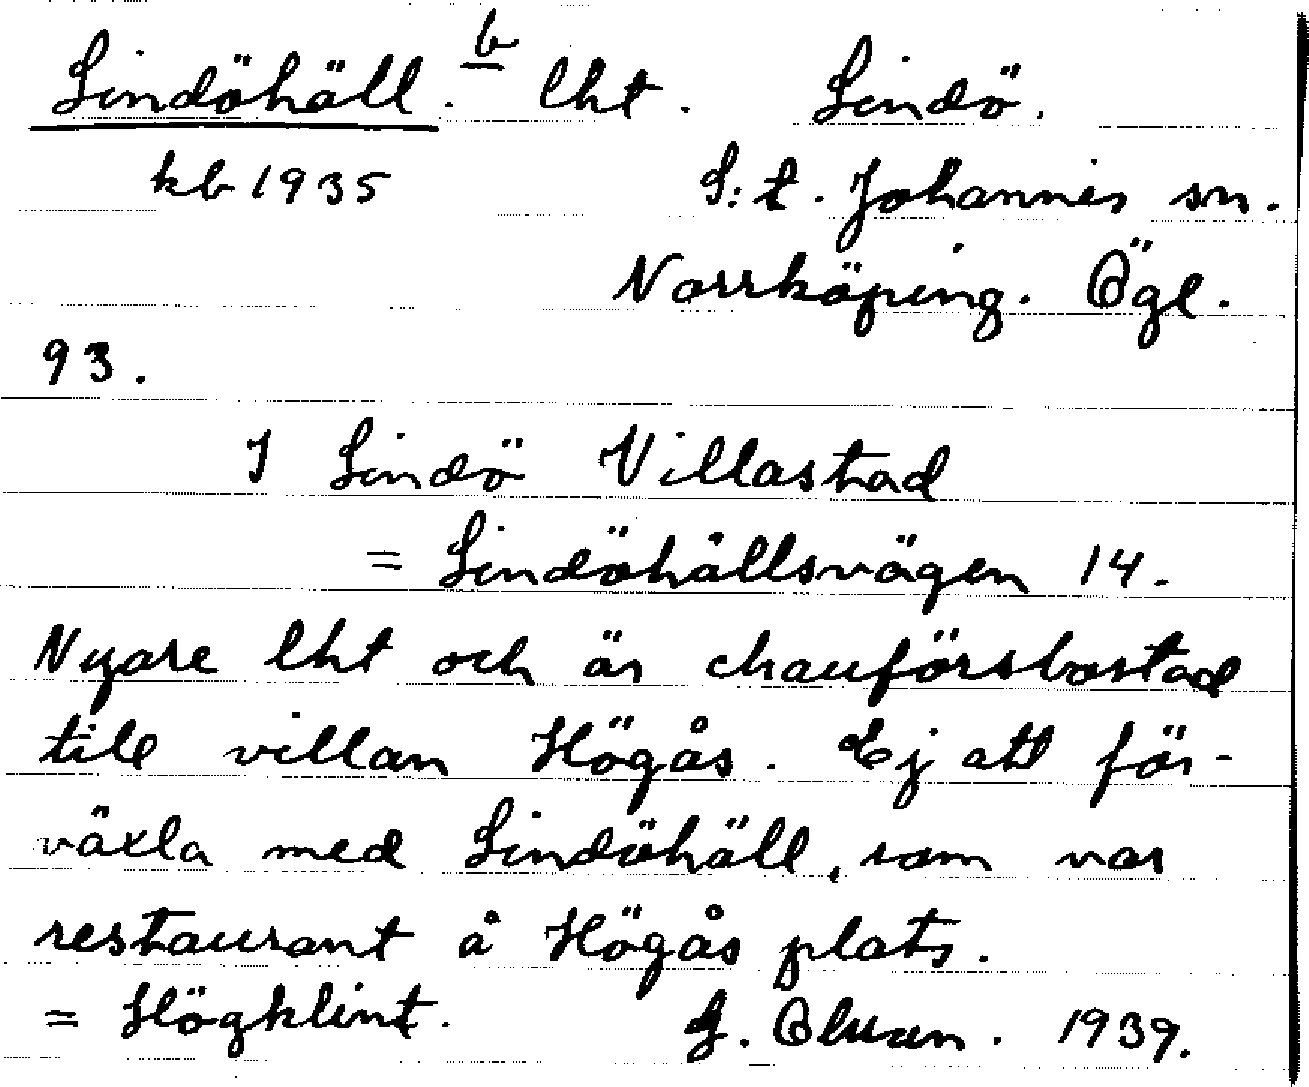 Lindöhäll. b lht. Lindö.
kb 1935 S:t. Johannes sn.
Norrköping. Ögl.
93.
I Lindö Villastad
= Lindöhällsvägen 14.
Nyare lht och är chauförsbostad
till villan Högås. Ej att för-
växla med Lindöhäll, som var
restaurant å Högås plats.
= Högklint. 1939.